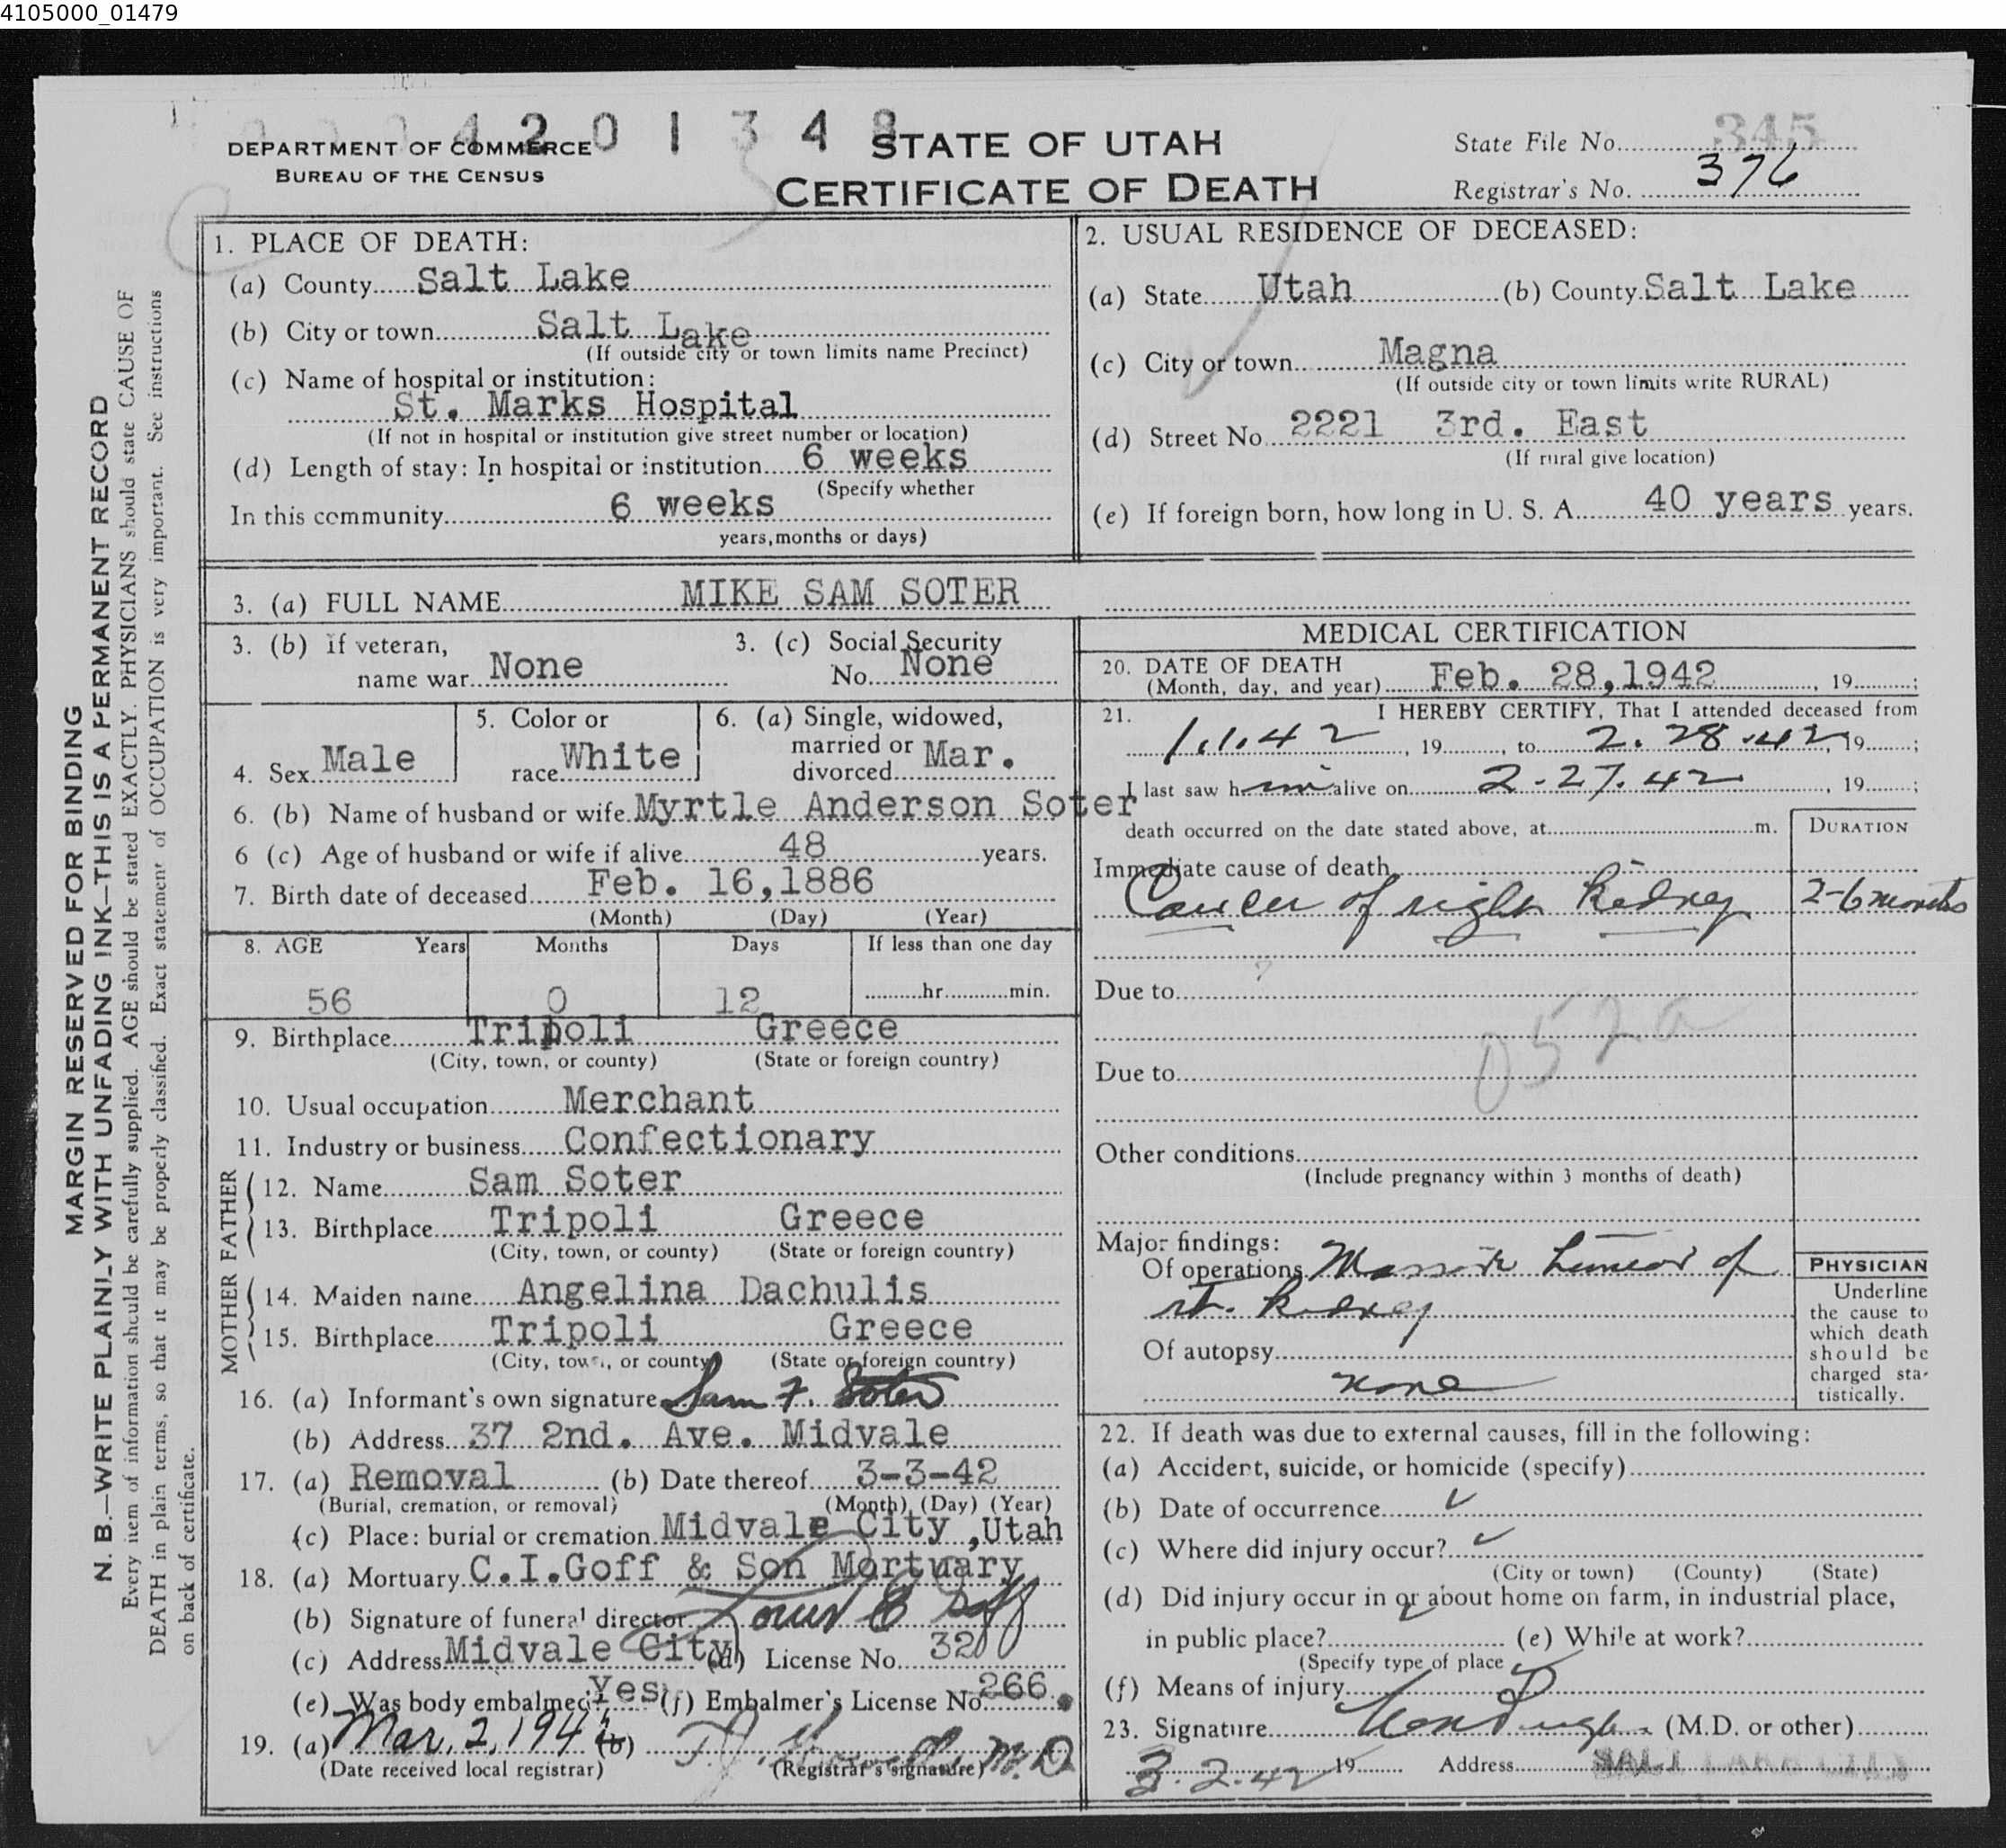 4105000_01479
4 2 0 1 3 4 8
DEPARTMENT OF COMMERCE
BUREAU OF THE CENSUS
STATE OF UTAH
CERTIFICATE OF DEATH
State File No. 345
Registrar's No. 376
MARGIN RESERVED FOR BINDING
N. B.—WRITE PLAINLY WITH UNFADING INK—THIS IS A PERMANENT RECORD
Every item of information should be carefully supplied. AGE should be stated EXACTLY. PHYSICIANS should state CAUSE OF
DEATH in plain terms, so that it may be properly classified. Exact statement of OCCUPATION is very important. See instructions
on back of certificate.
1. PLACE OF DEATH:
(a) County Salt Lake
(b) City or town Salt Lake
(If outside city or town limits name Precinct)
(c) Name of hospital or institution:
St. Marks Hospital
(If not in hospital or institution give street number or location)
(d) Length of stay: In hospital or institution 6 weeks
(Specify whether
In this community 6 weeks
years, months or days)
2. USUAL RESIDENCE OF DECEASED:
(a) State Utah (b) County Salt Lake
(c) City or town Magna
(If outside city or town limits write RURAL)
(d) Street No. 2221 3rd. East
(If rural give location)
(e) If foreign born, how long in U. S. A. 40 years years.
3. (a) FULL NAME MIKE SAM SOTER
3. (b) If veteran, name war None
3. (c) Social Security No. None
4. Sex Male
5. Color or race White
6. (a) Single, widowed, married or divorced Mar.
6. (b) Name of husband or wife Myrtle Anderson Soter
6 (c) Age of husband or wife if alive 48 years.
7. Birth date of deceased Feb. 16,1886
(Month) (Day) (Year)
8. AGE Years Months Days If less than one day
56 0 12 hr. min.
9. Birthplace Tripoli Greece
(City, town, or county) (State or foreign country)
10. Usual occupation Merchant
11. Industry or business Confectionary
FATHER
12. Name Sam Soter
13. Birthplace Tripoli Greece
(City, town, or county) (State or foreign country)
MOTHER
14. Maiden name Angelina Dachulis
15. Birthplace Tripoli Greece
(City, town, or county) (State or foreign country)
16. (a) Informant's own signature Sam F. Soter
(b) Address 37 2nd. Ave. Midvale
17. (a) Removal (b) Date thereof 3-3-42
(Burial, cremation, or removal) (Month) (Day) (Year)
(c) Place: burial or cremation Midvale City ,Utah
18. (a) Mortuary C.I.Goff & Son Mortuary
(b) Signature of funeral director Goff
(c) Address Midvale City (d) License No. 320
(e) Was body embalmed? Yes (f) Embalmer's License No. 266.
19. (a) Mar. 2, 1942 (b) M.D.
(Date received local registrar) (Registrar's signature)
MEDICAL CERTIFICATION
20. DATE OF DEATH
(Month, day, and year) Feb. 28,1942, 19 ;
21. I HEREBY CERTIFY, That I attended deceased from
1.1.42, 19 , to 2.28.42, 19 ;
I last saw him alive on 2-27.42, 19 ;
death occurred on the date stated above, at m.
DURATION
Immediate cause of death
Cancer of right Kidney 2-6 months
Due to ?
052a
Due to
Other conditions
(Include pregnancy within 3 months of death)
Major findings:
Of operations Massive tumor of
rt. Kidney
Of autopsy
none
PHYSICIAN
Underline
the cause to
which death
should be
charged sta-
tistically.
22. If death was due to external causes, fill in the following:
(a) Accident, suicide, or homicide (specify)
(b) Date of occurrence
(c) Where did injury occur?
(City or town) (County) (State)
(d) Did injury occur in or about home on farm, in industrial place,
in public place? (e) While at work?
(Specify type of place
(f) Means of injury
23. Signature (M.D. or other)
3.2.42 19 Address SALT LAKE CITY